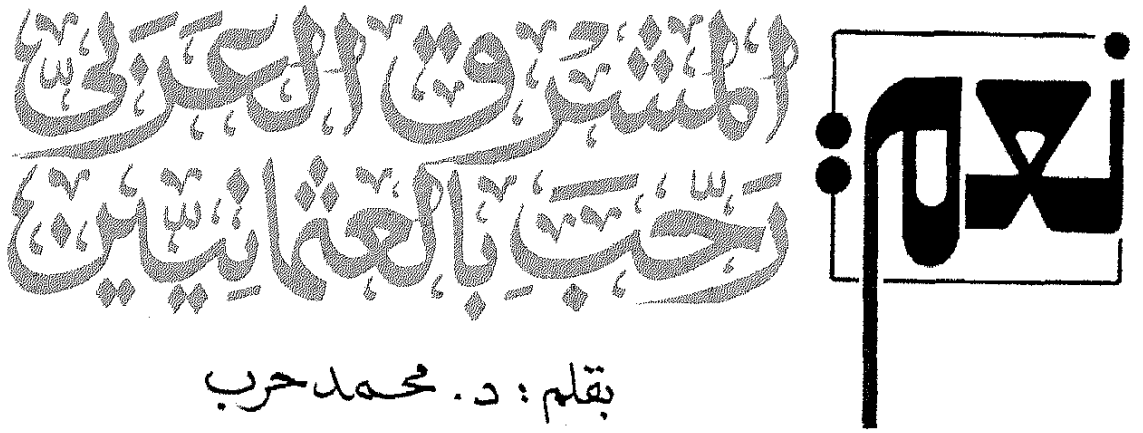 نعم :
المشرق العربي
رحّب بالعثمانيّين
بقلم : د . محمد حرب